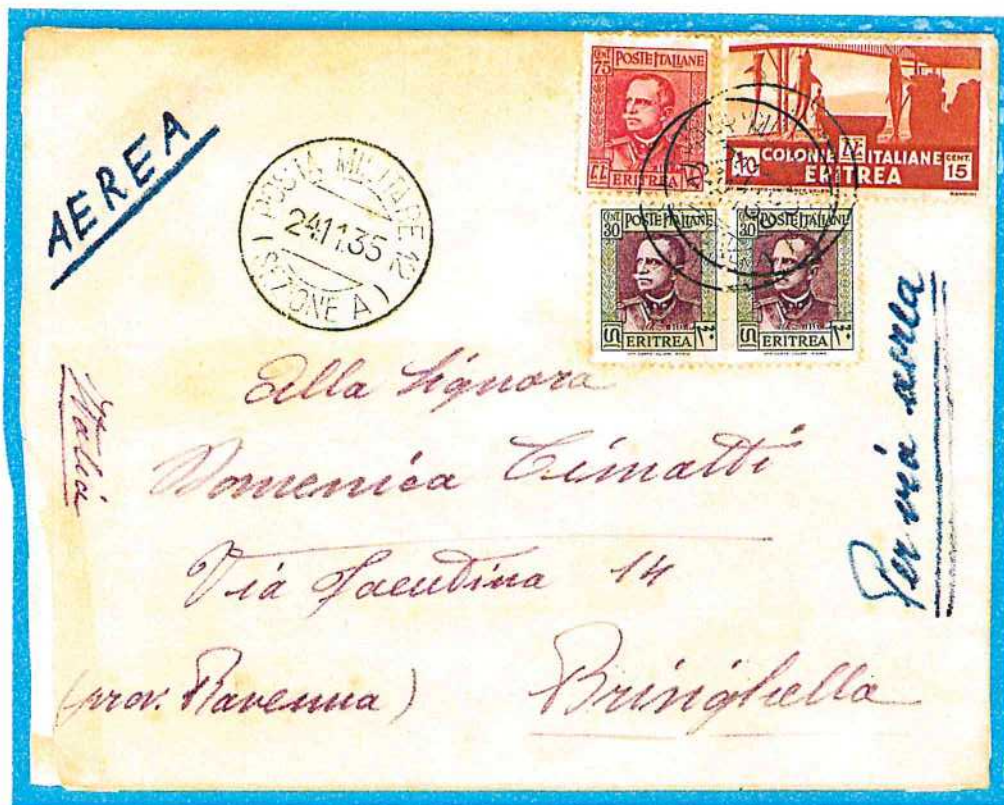 AEREA
POSTA MILITARE 12
24.11.35
(SEZIONE A)
CENT 75 POSTE ITALIANE
ERITREA
COLONIE ITALIANE
ERITREA
CENT. 15
CENT 30 POSTE ITALIANE
ERITREA
CENT 30 POSTE ITALIANE
ERITREA
Italia
Alla Signora
Domenica Cimatti
Via 14
(prov. Ravenna)
Brisighella
Per via aerea